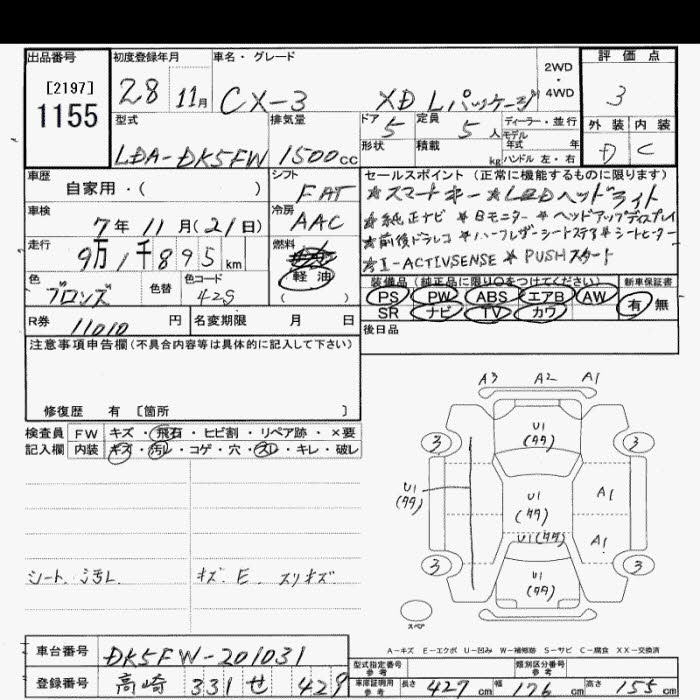 出品番号 初度登録年月 車名・グレード 2WD・4WD 評価点
[2197]
1155
28 11月 CX-3 XD Lパッケージ 3
型式 排気量 ドア 5 定員 5 人 ディーラー・並行 外装 内装
モデル年式 年
LDA-DK5FW 1500cc 形状 積載 kg ハンドル 左・右 D C
車歴 シフト セールスポイント (正常に機能するものに限ります)
自家用・( ) FAT ★スマートキー ★LEDヘッドライト
車検 冷房 ★純正ナビ ★Bモニター ★ヘッドアップディスプレイ
7年11月(21日) AAC ★前後ドラレコ ★ハーフレザーシート ★シートヒーター
走行 燃料 ★I-ACTIVSENSE ★PUSHスタート
9万1千895km 軽油
色 色替 色コード ( ) 装備品 (純正品に限り○をつけてください) 新車保証書
ブロンズ 42S PS PW ABS エアB AW 有 無
SR ナビ TV カワ
R券 11010円 名変期限 月 日 後日品
注意事項申告欄(不具合内容等は具体的に記入して下さい)
修復歴 有 [箇所 ]
検査員 FW キズ・飛石・ヒビ割・リペア跡・×要
記入欄 内装 キズ・汚レ・コゲ・穴・スレ・キレ・破レ
A3 A2 A1
U1
(タタ)
3 3
U1
(タタ)
U1
(タタ)
A1
U1(タタ)
A1
3 3
U1
(タタ)
シート汚レ キズ、E、スリキズ
スペア
A-キズ E-エクボ U-凹み W-補修跡 S-サビ C-腐食 XX-交換済
車台番号 DK5FW-201031
型式指定番号 参考 類別区分番号 参考
登録番号 高崎 331 せ 429
車庫証明用 参考 長さ 427cm 幅 176cm 高さ 155cm